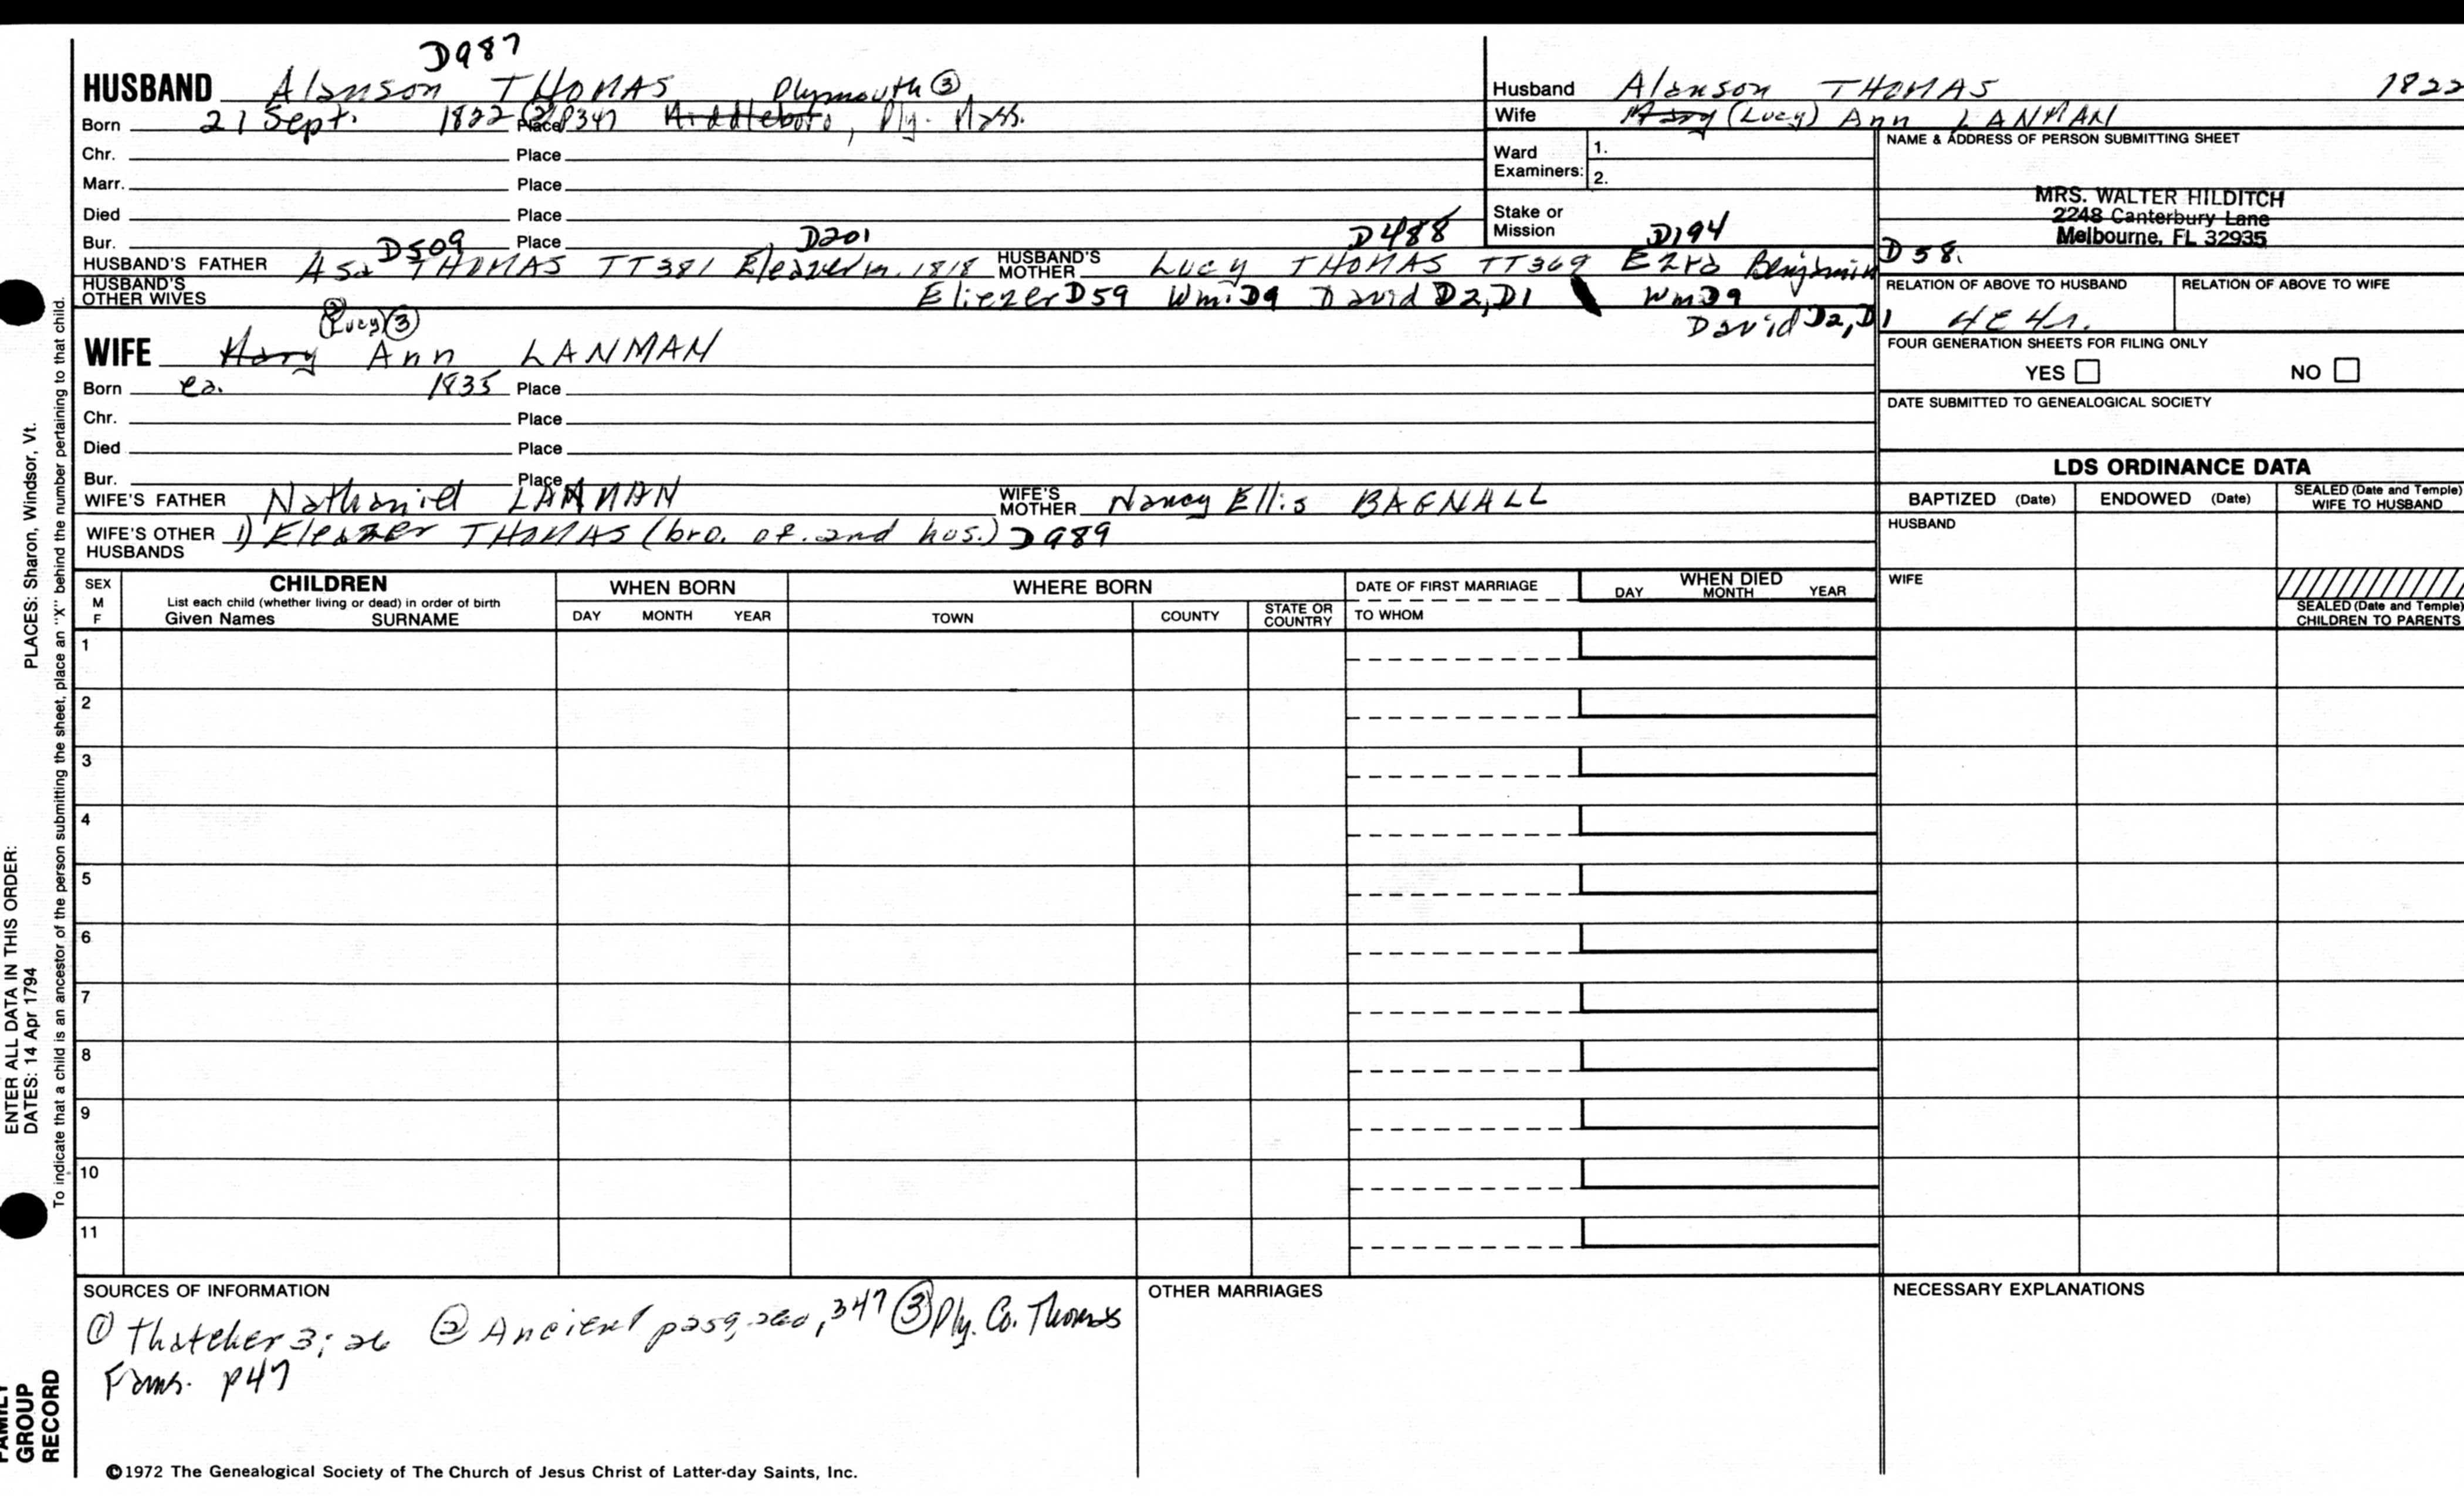 D987
HUSBAND Alanson THOMAS Plymouth ③
Born 21 Sept. 1822 ② p347 Place Middleboro, Ply. Mass.
Chr. Place
Marr. Place
Died Place
Bur. Place
D509 D201 D488 D194
HUSBAND'S FATHER Asa THOMAS TT381 Eleazer m. 1818 HUSBAND'S MOTHER Lucy THOMAS TT369 Ezra Benjamin D58.
HUSBAND'S OTHER WIVES Eliezer D59 Wm. D9 David D2, D1 Wm D9
David D2, D1
(Lucy) ③
WIFE Mary Ann LANMAN
Born ca. 1835 Place
Chr. Place
Died Place
Bur. Place
WIFE'S FATHER Nathaniel LANMAN WIFE'S MOTHER Nancy Ellis BAGNALL
WIFE'S OTHER HUSBANDS 1) Eleazer THOMAS (bro. of. 2nd hus.) D989
Husband Alanson THOMAS 1822
Wife Mary (Lucy) Ann LANMAN
Ward Examiners: 1.
2.
Stake or Mission
NAME & ADDRESS OF PERSON SUBMITTING SHEET
MRS. WALTER HILDITCH
2248 Canterbury Lane
Melbourne, FL 32935
RELATION OF ABOVE TO HUSBAND RELATION OF ABOVE TO WIFE
FOUR GENERATION SHEETS FOR FILING ONLY
YES NO
DATE SUBMITTED TO GENEALOGICAL SOCIETY
LDS ORDINANCE DATA
BAPTIZED (Date) ENDOWED (Date) SEALED (Date and Temple) WIFE TO HUSBAND
HUSBAND
WIFE
SEALED (Date and Temple) CHILDREN TO PARENTS
SEX M F
CHILDREN
List each child (whether living or dead) in order of birth
Given Names SURNAME
WHEN BORN
DAY MONTH YEAR
WHERE BORN
TOWN COUNTY STATE OR COUNTRY
DATE OF FIRST MARRIAGE
TO WHOM
WHEN DIED
DAY MONTH YEAR
1
2
3
4
5
6
7
8
9
10
11
SOURCES OF INFORMATION
① Thatcher 3; 26 ② Ancient p259, 260, 347 ③ Ply. Co. Thomas
Fams. p47
OTHER MARRIAGES
NECESSARY EXPLANATIONS
©1972 The Genealogical Society of The Church of Jesus Christ of Latter-day Saints, Inc.
ENTER ALL DATA IN THIS ORDER:
DATES: 14 Apr 1794 PLACES: Sharon, Windsor, Vt.
To indicate that a child is an ancestor of the person submitting the sheet, place an "X" behind the number pertaining to that child.
FAMILY
GROUP
RECORD